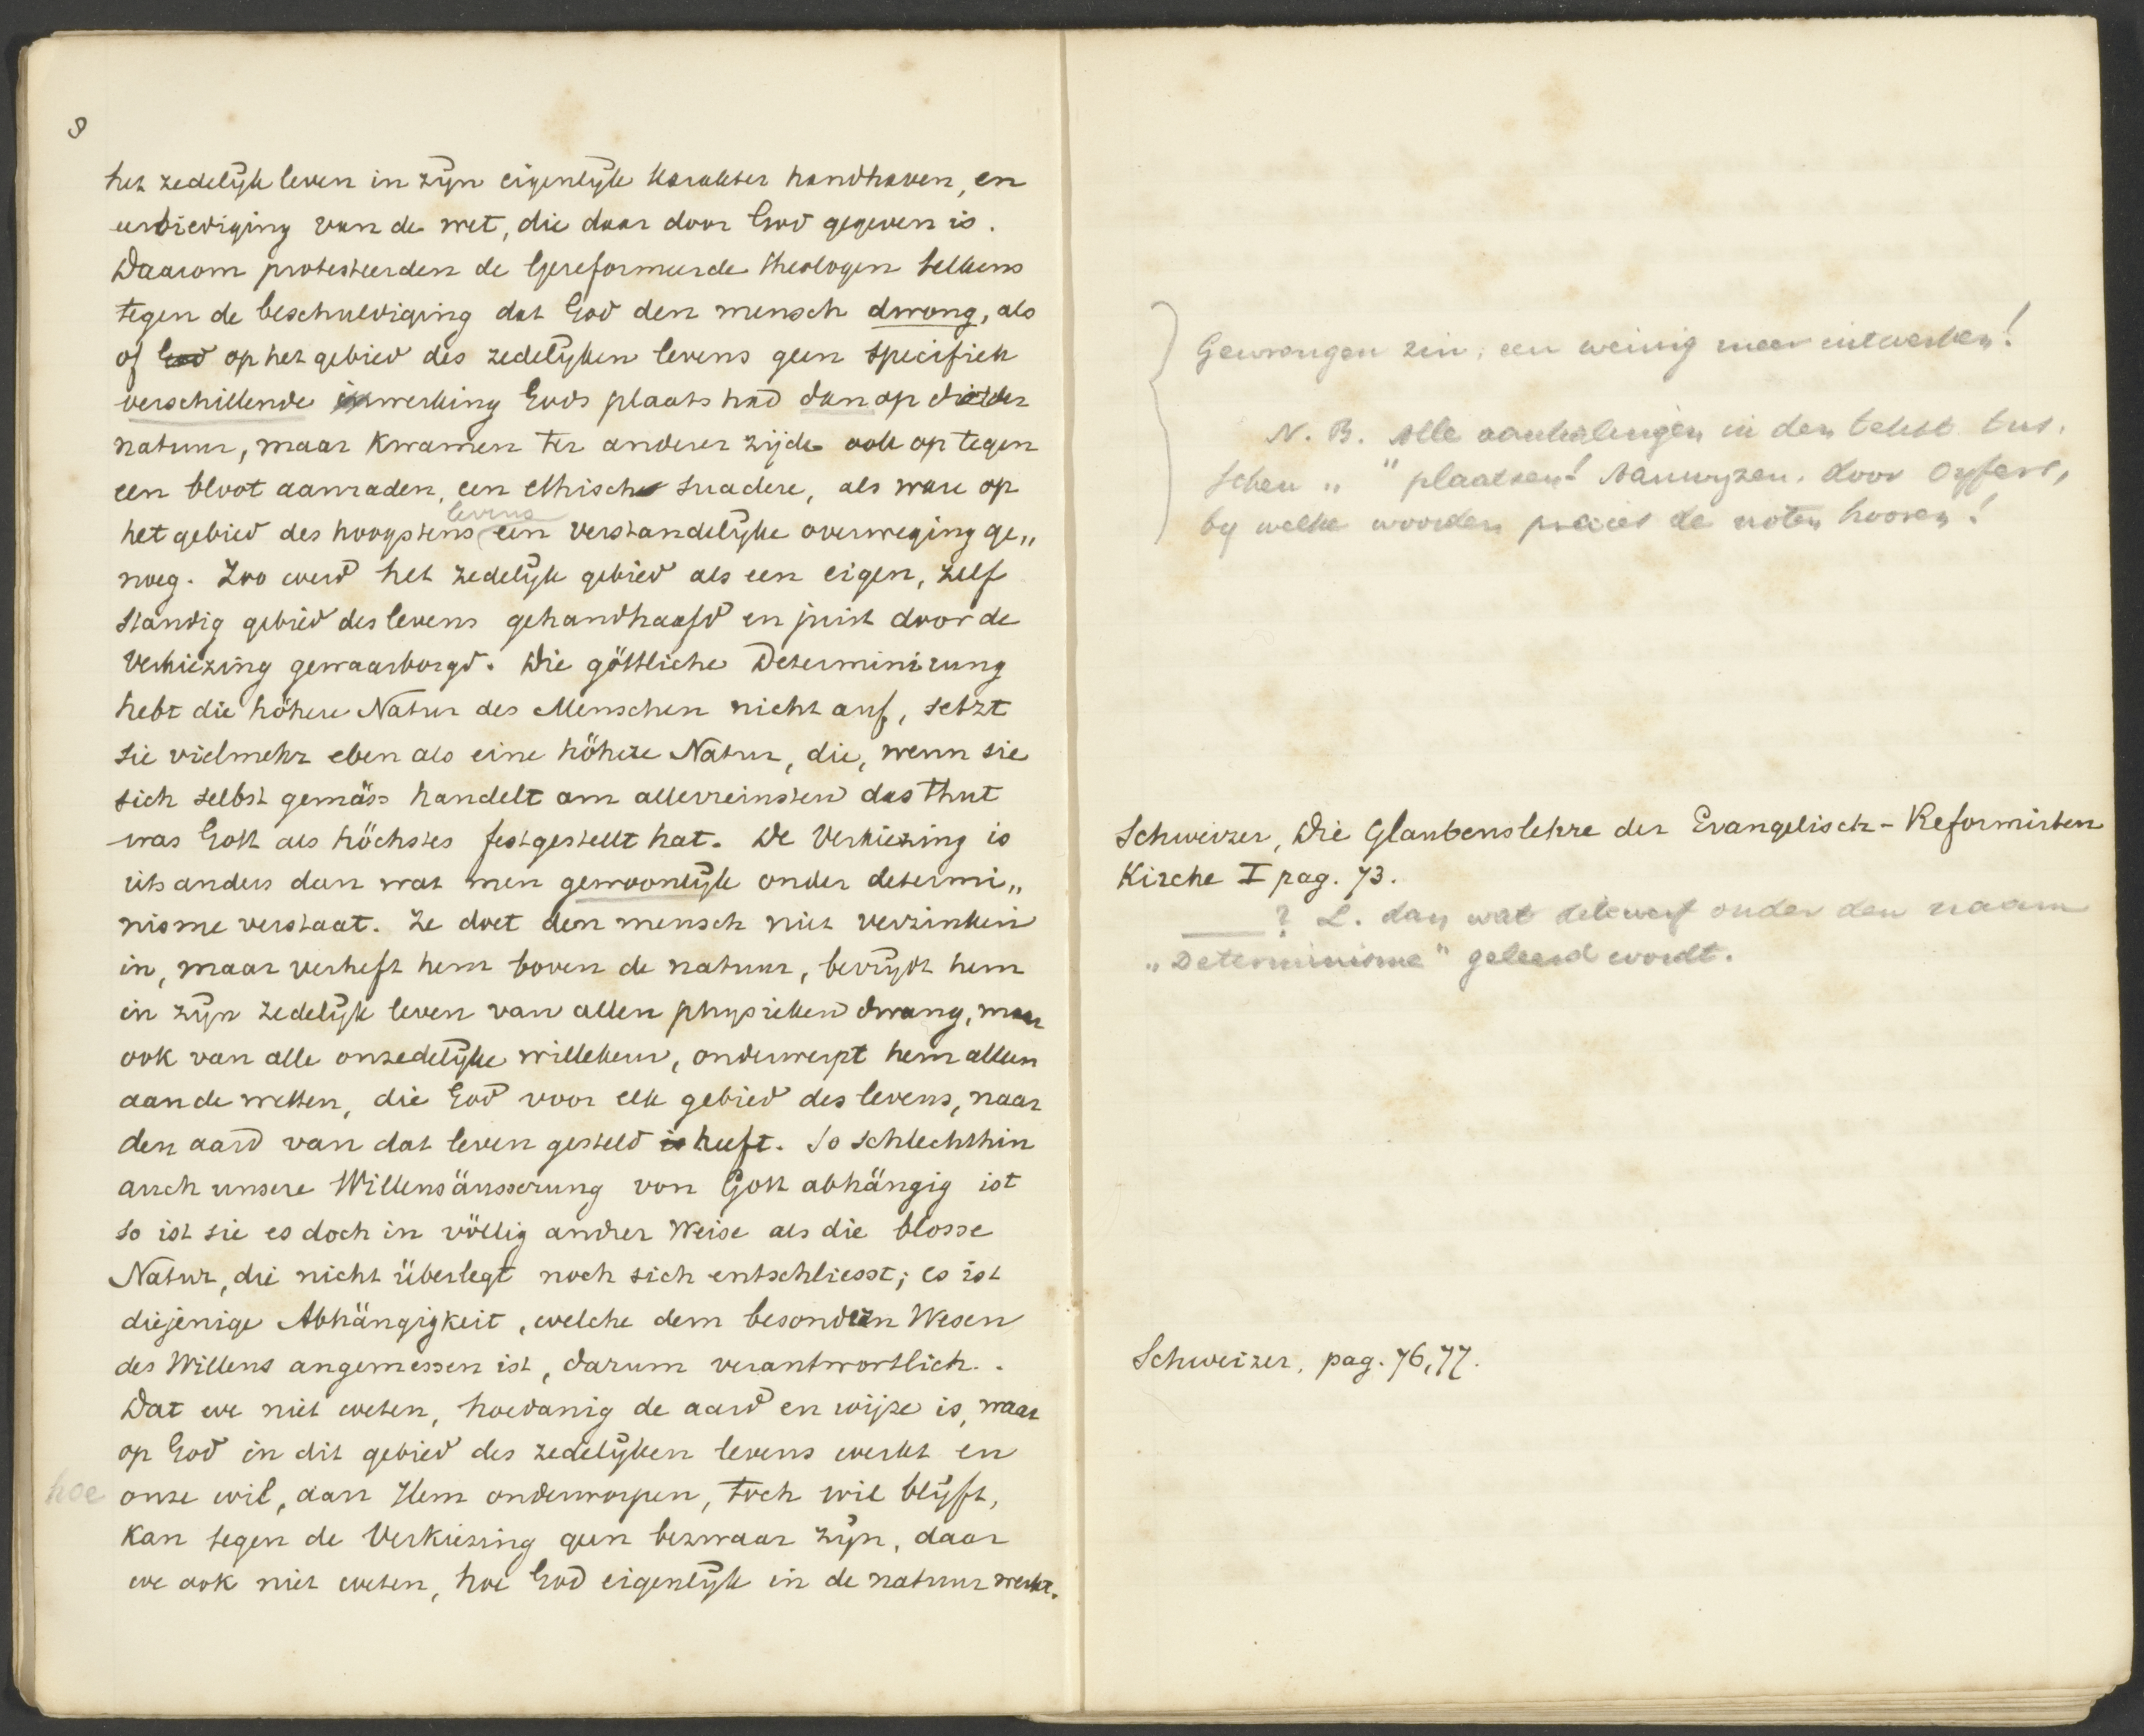 8
het zedelijk leven in zijn eigenlijk karakter handhaven, en
eerbiediging van de wet, die daar door God gegeven is.
Daarom protesteerden de Gereformeerde theologen telkens
tegen de beschuldiging dat God den mensch dwong, als
of God op het gebied des zedelijken levens geen specifiek
verschillende inwerking Gods plaats had dan op die der
natuur, maar kwamen ter anderer zijde ook op tegen
een bloot aanraden, een ethisch suadere, als ware op
levens
het gebied des hoogstens een verstandelijke overweging ge„
noeg. Zoo werd het zedelijk gebied als een eigen, zelf
standig gebied des levens gehandhaafd en juist door de
Verkiezing gewaarborgd. Die göttliche Determinirung
hebt die höhere Natur des Menschen nicht auf, setzt
sie vielmehr eben als eine höhere Natur, die, wenn sie
sich selbst gemäss handelt am allerreinsten das thut
was Gott als höchstes festgestellt hat. De Verkiezing is
iets anders dan wat men gewoonlijk onder determi„
nisme verstaat. Ze doet den mensch niet verzinken
in, maar verheft hem boven de natuur, bevrijdt hem
in zijn zedelijk leven van allen physieken dwang, maar
ook van alle onzedelijke willekeur, onderwerpt hem alleen
aan de wetten, die God voor elk gebied des levens, naar
den aard van dat leven gesteld is heeft. So schlechthin
auch unsere Willensäusserung von Gott abhängig ist
so ist sie es doch in völlig andrer Weise als die blosse
Natur, die nicht überlegt noch sich entschliesst; es ist
diejenige Abhängigkeit, welche dem besondern Wesen
des Willens angemessen ist, darum verantwortlich.
Dat we niet weten, hoedanig de aard en wijze is, waar
op God in dit gebied des zedelijken levens werkt en
hoe onze wil, aan Hem onderworpen, toch wil blijft,
kan tegen de Verkiezing geen bezwaar zijn, daar
we ook niet weten, hoe God eigenlijk in de natuur werkt.
Gewrongen zin; een weinig meer uitwerken!
N. B. Alle aanhalingen in den tekst tus.
schen „ " plaatsen! Aanwyzen, door cyfers,
by welke woorden precies de noten hooren!
Schweizer, Die Glaubenslehre der Evangelisch-Reformirten
Kirche I pag. 73.
? L. dan wat dikwerf onder den naam
„Determinisme" geleerd wordt.
Schweizer, pag. 76, 77.